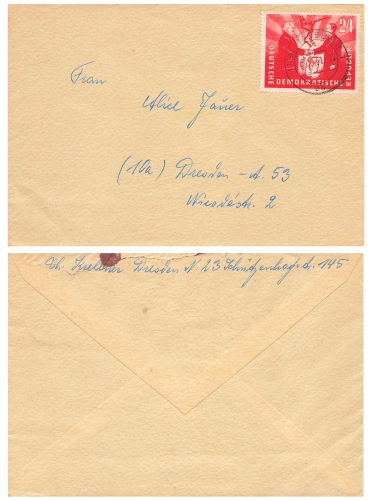 24
DEUTSCHE
DEMOKRATISCHE
REPUBLIK
Frau
Alice Jäuer
(10a) Dresden - A. 53
2
Dresden N. 23 Schützenhofstr. 145